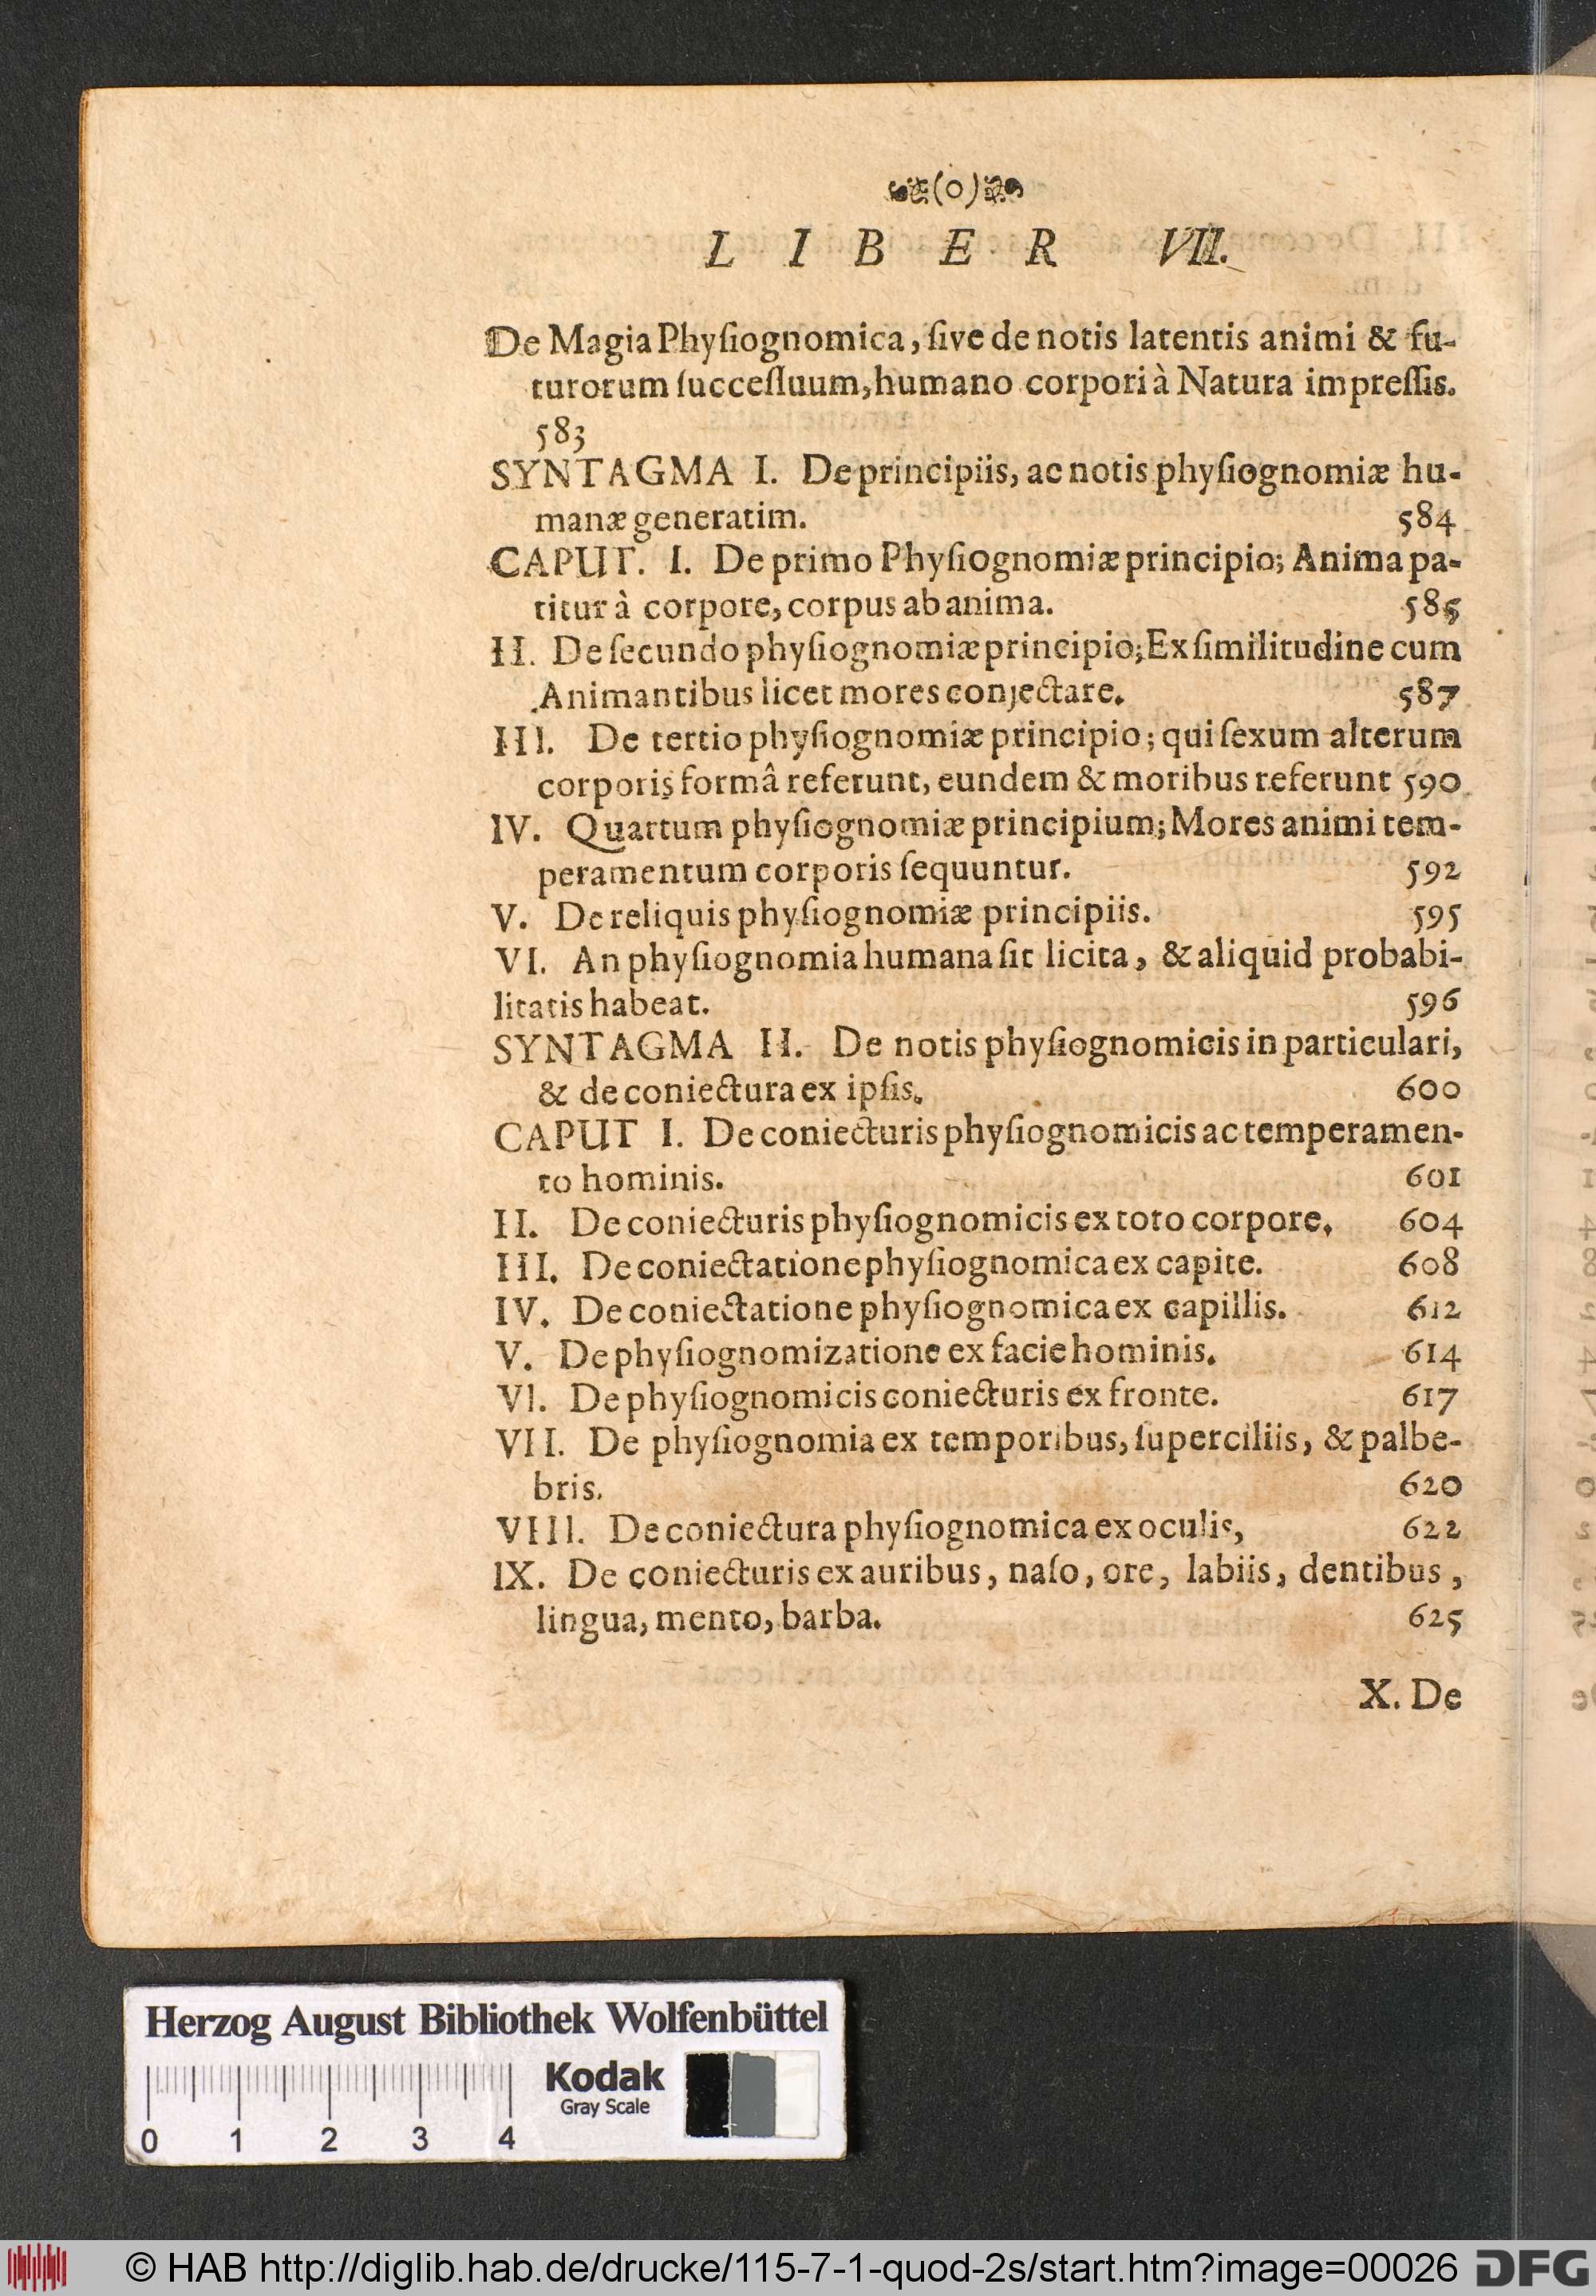 (0)
LIBER VII.
De Magia Phyſiognomica, ſive de notis latentis animi & fu-
turorum ſucceſſuum, humano corpori à Natura impreſſis.
583
SYNTAGMA I. De principiis, ac notis phyſiognomiæ hu-
manæ generatim. 584
CAPUT. I. De primo Phyſiognomiæ principio; Anima pa-
titur à corpore, corpus ab anima. 585
II. De ſecundo phyſiognomiæ principio; Ex ſimilitudine cum
Animantibus licet mores conjectare. 587
III. De tertio phyſiognomiæ principio; qui ſexum alterum
corporis formâ referunt, eundem & moribus referunt 590
IV. Quartum phyſiognomiæ principium; Mores animi tem-
peramentum corporis ſequuntur. 592
V. De reliquis phyſiognomiæ principiis. 595
VI. An phyſiognomia humana ſit licita, & aliquid probabi-
litatis habeat. 596
SYNTAGMA II. De notis phyſiognomicis in particulari,
& de coniectura ex ipſis. 600
CAPUT I. De coniecturis phyſiognomicis ac temperamen-
to hominis. 601
II. De coniecturis phyſiognomicis ex toto corpore. 604
III. De coniectatione phyſiognomica ex capite. 608
IV. De coniectatione phyſiognomica ex capillis. 612
V. De phyſiognomizatione ex facie hominis. 614
VI. De phyſiognomicis coniecturis ex fronte. 617
VII. De phyſiognomia ex temporibus, ſuperciliis, & palbe-
bris. 620
VIII. De coniectura phyſiognomica ex oculis, 622
IX. De coniecturis ex auribus, naſo, ore, labiis, dentibus,
lingua, mento, barba. 625
X. De
Herzog August Bibliothek Wolfenbüttel
Kodak
Gray Scale
0 1 2 3 4
© HAB http://diglib.hab.de/drucke/115-7-1-quod-2s/start.htm?image=00026 DFG